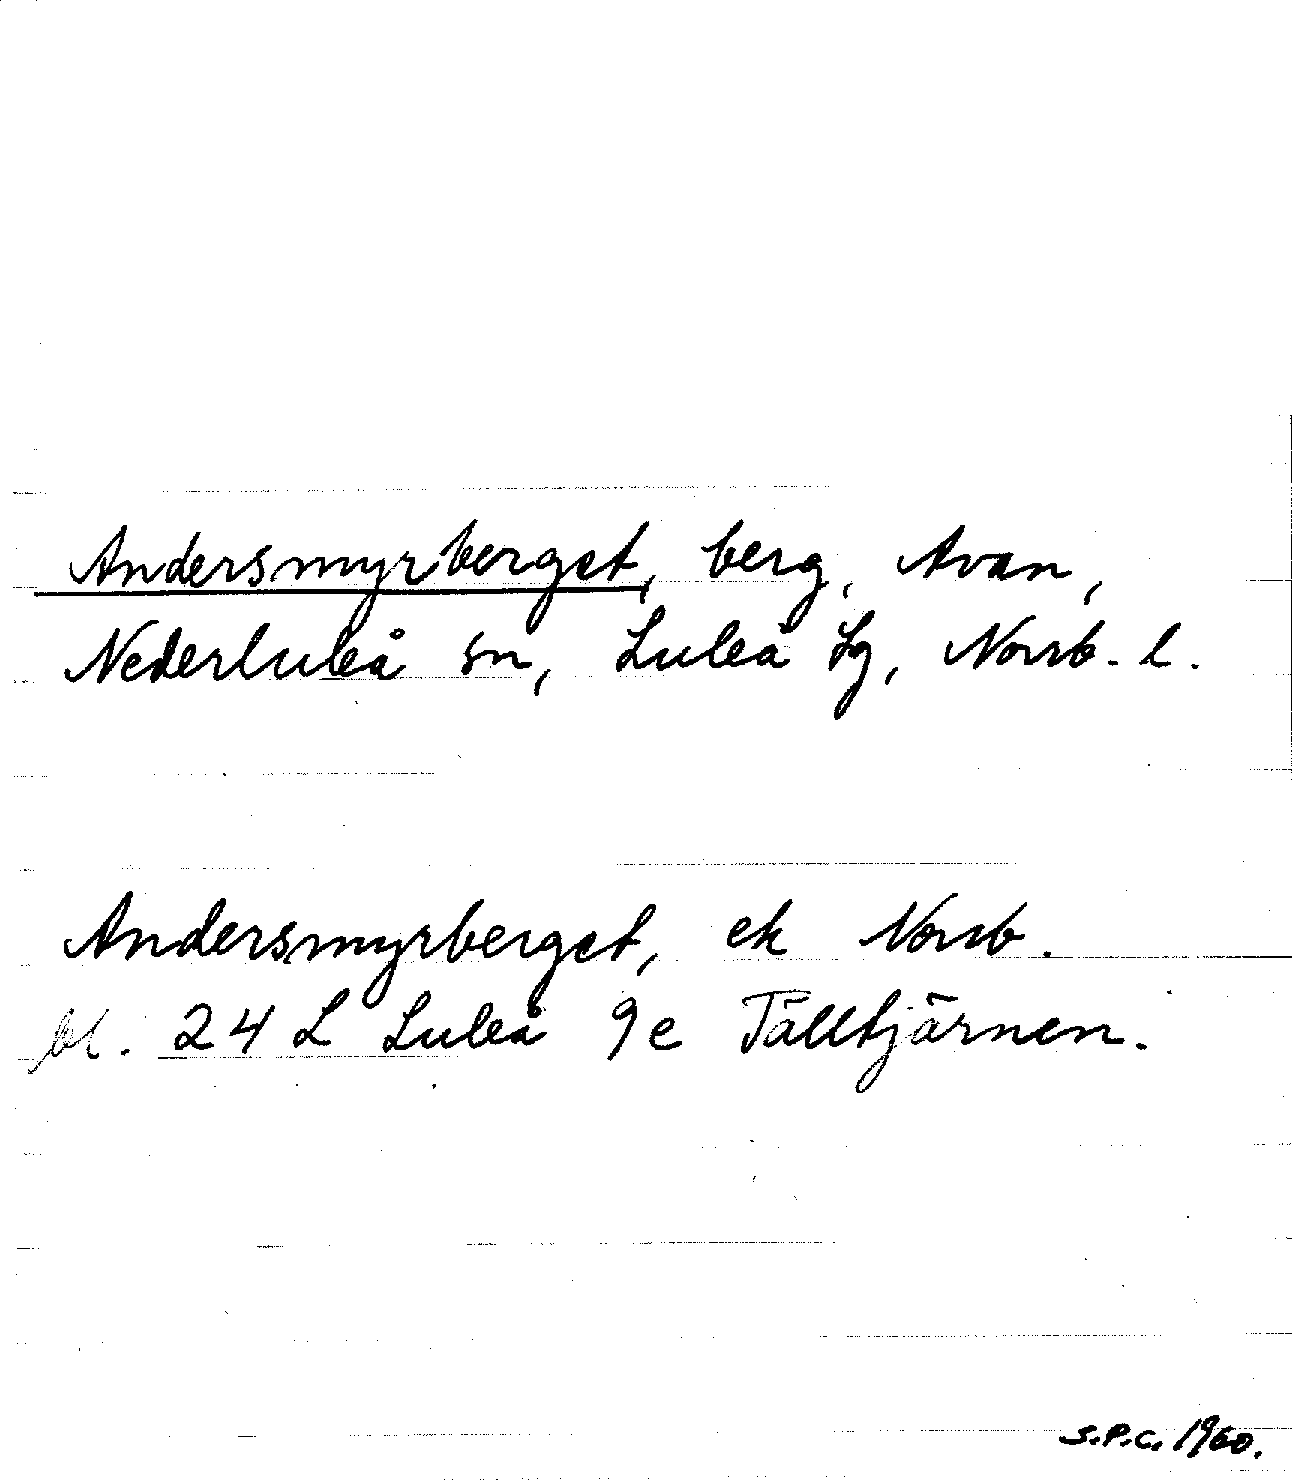 Andersmyrberget, berg, Avan,
Nederluleå sn, Luleå lg, Norrb. l.
Andersmyrberget, ek Norrb.
bl. 24 L Luleå 9e Tälltjärnen.
S.P.C. 1960.